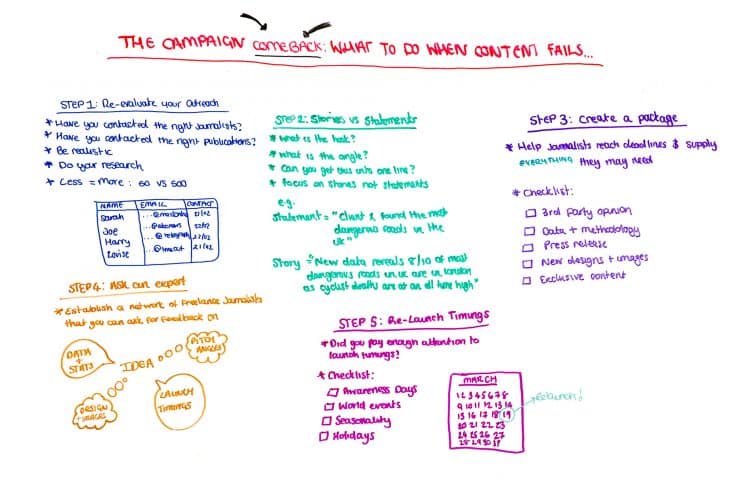 THE CAMPAIGN COMEBACK: WHAT TO DO WHEN CONTENT FAILS...
STEP 1: Re-evaluate your Outreach
* Have you contacted the right Journalists?
* Have you contacted the right Publications?
* Be realistic
* Do your research
* Less = more : 50 VS 500
NAME EMAIL CONTACT
Sarah
Joe
Harry
Louise
STEP 2: Stories vs Statements
* What is the hook?
* What is the angle?
* Can you get this into one line?
* Focus on stories not statements
e.g.
Statement = "Client X found the most
dangerous roads in the
UK"
Story = "New data reveals 8/10 of most
dangerous roads in UK are in London
as cyclist deaths are at an all time high"
STEP 3: Create a package
* Help Journalists reach deadlines & supply
EVERYTHING they may need
* Checklist:
3rd party opinion
Data + methodology
Press release
New designs + images
Exclusive content
STEP 4: Ask an expert
* Establish a network of Freelance Journalists
that you can ask for Feedback on
DATA
+
STATS
IDEA
PITCH
ANGLES
DESIGN
+ IMAGES
LAUNCH
TIMINGS
STEP 5: Re-Launch Timings
* Did you pay enough attention to
launch timings?
* Checklist:
Awareness Days
World events
Seasonality
Holidays
MARCH
1 2 3 4 5 6 7 8
9 10 11 12 13 14
15 16 17 18 19
20 21 22 23
24 25 26 27
28 29 30 31
Relaunch!